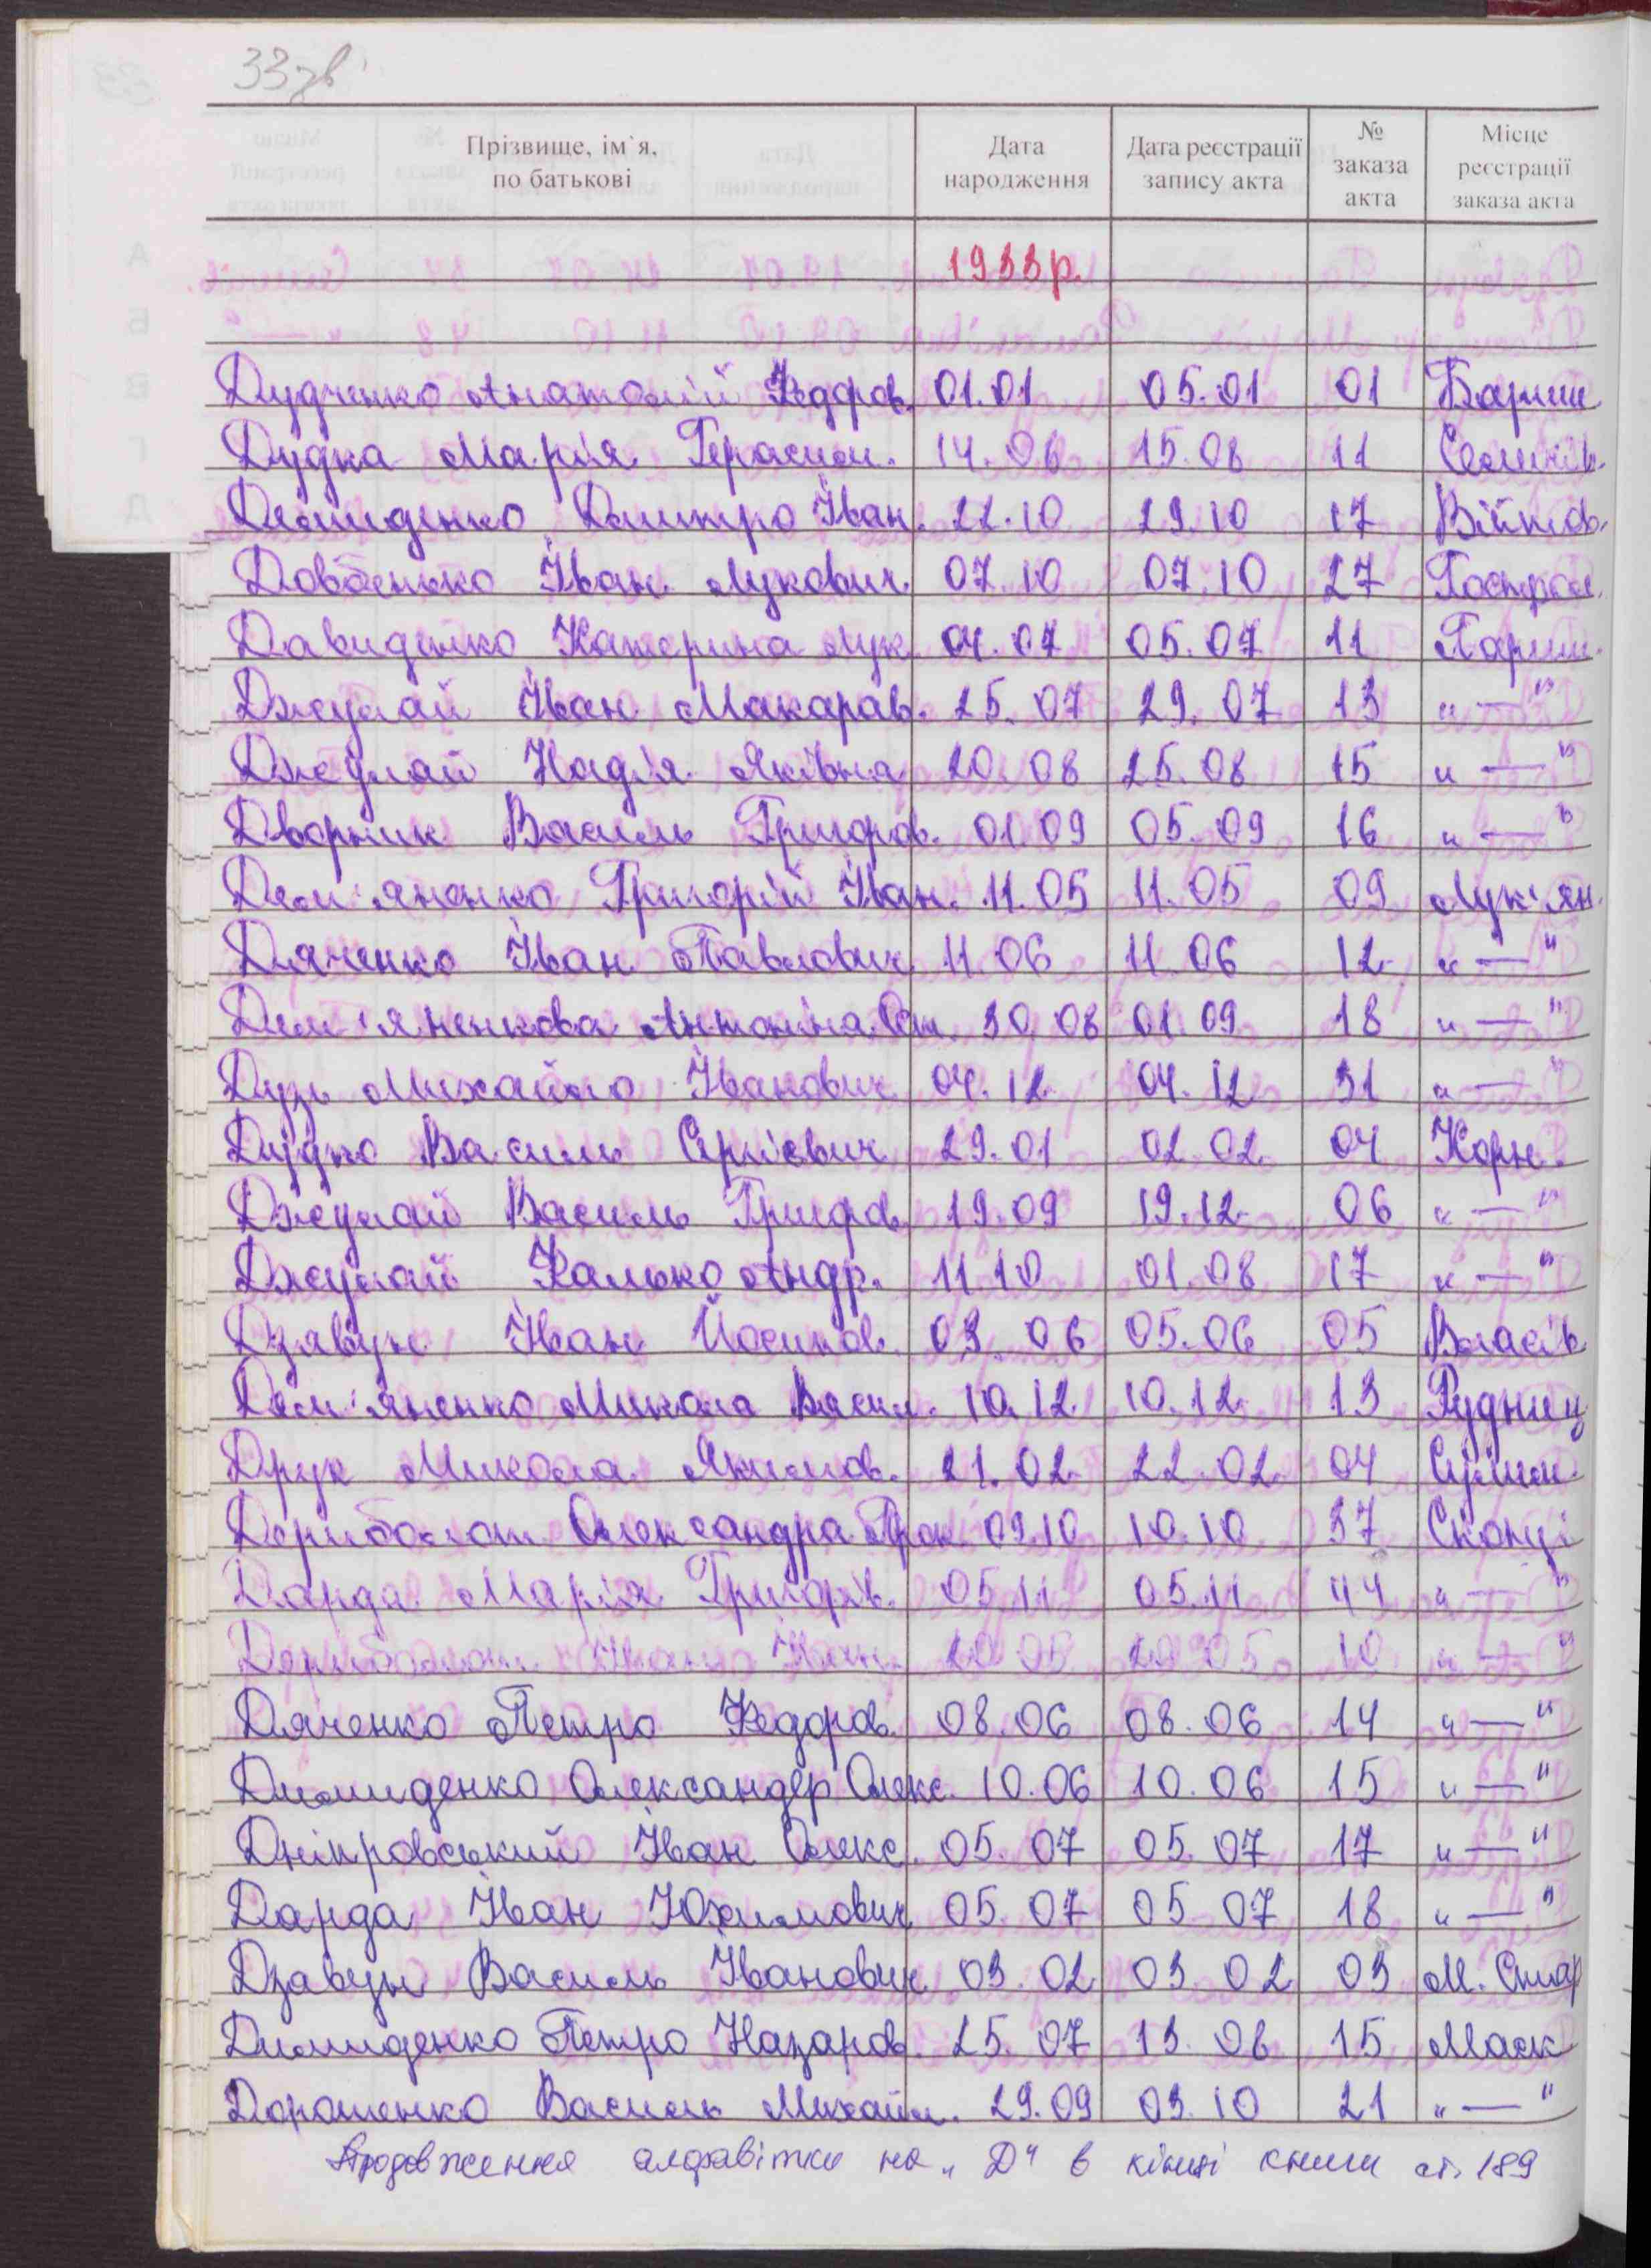 33 зв
Прізвище, ім`я, по батькові | Дата народження | Дата реєстрації запису акта | № заказа акта | Місце реєстрації заказа акта
1933 р.
Дудченко Анатолій Федоров. 01.01 05.01 01 Бариш
Дудка Марія Герасим. 14.06 15.08 11 Семенів.
Демиденко Дмитро Іван. 22.10 29.10 17 Війтов.
Довбенько Іван Лукович. 07.10 07.10 27 Гостров.
Давиденко Катерина Лук. 04.07 05.07 11 Париш.
Джулай Іван Макаров. 25.07 29.07 13 " — "
Джулай Надія Яківна 20.08 25.08 15 " — "
Дворник Василь Григоров. 01.09 05.09 16 " — "
Дем'яненко Григорій Іван. 11.05 11.05 09 Лук'ян.
Дяченко Іван Павлович 11.06 11.06 12 " — "
Дем'яненкова Антоніна 30.08 01.09 18 " — "
Дузь Михайло Іванович 04.12 04.12 31 " — "
Дудко Василь Сергієвич 29.01 02.02 04 Корн.
Джулай Василь Григоров 19.09 19.12 06 " — "
Джулай Калько Андр. 11.10 01.08 17 " — "
Дзявун Іван Йосипов. 03.06 05.06 05 Власів
Дем'яненко Микола Васил. 10.12 10.12 13 Рудниц
Друк Микола Якимов. 21.02 22.02 04 Сулим.
Дериболот Олександра Прок 09.10 10.10 37 Скопці
Дарда Марія Григорів. 05.11 05.11 44 " — "
Дериболот Іван. 10 " — "
Дяченко Петро Федоров. 08.06 08.06 14 " — "
Демиденко Олександер Олекс. 10.06 10.06 15 " — "
Дніпровський Іван Олекс. 05.07 05.07 17 " — "
Дарда Іван Юхимович 05.07 05.07 18 " — "
Дзавун Василь Іванович 03.02 03.02 03 М. Стар
Демиденко Петро Назаров. 25.07 13.08 15 Маск
Дорошенко Василь Михайл. 29.09 03.10 21 " — "
Продовження алфавітки на „Д" в кінці книги ст. 189